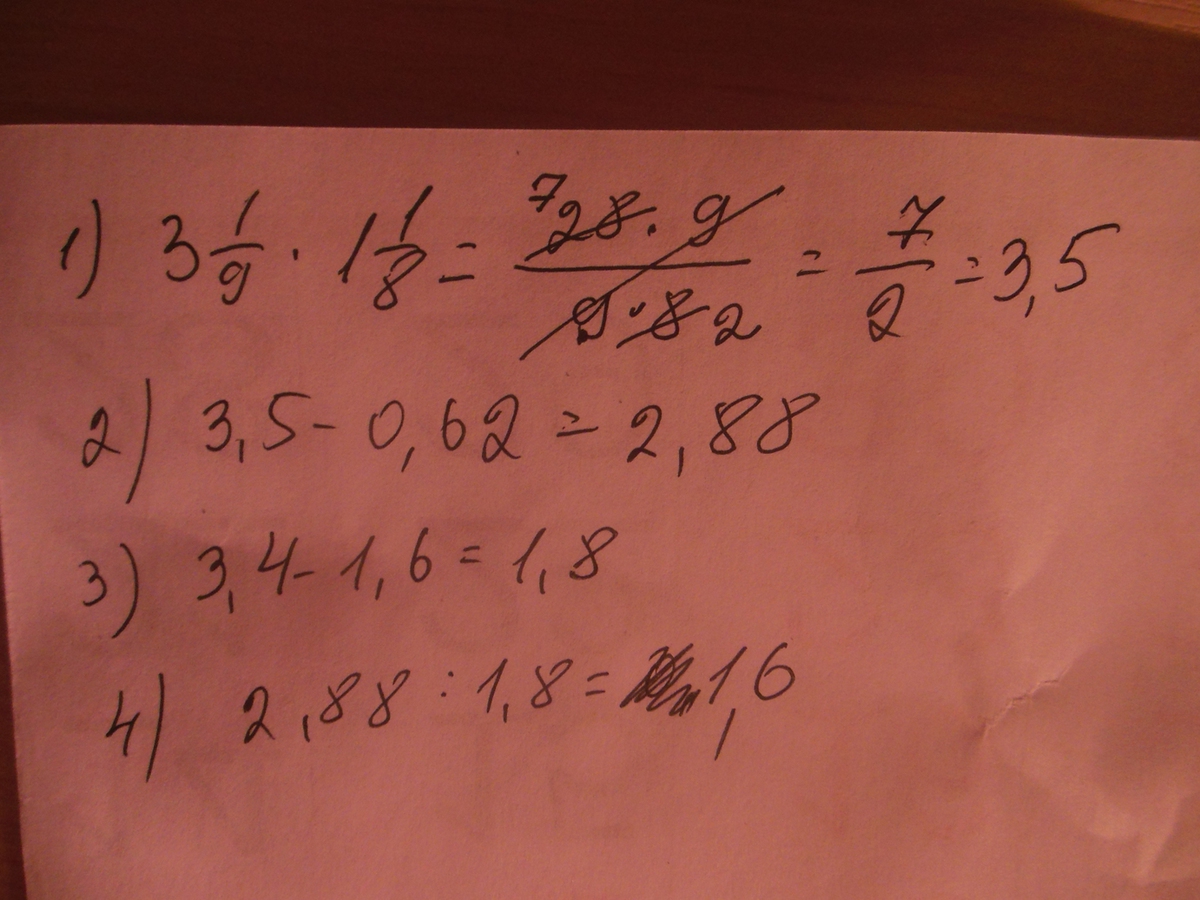 1) 3 1/9 · 1 1/8 = 7 28 · 9 / 9 · 8 2 = 7/2 = 3,5
2) 3,5 - 0,62 = 2,88
3) 3,4 - 1,6 = 1,8
4) 2,88 : 1,8 = 1,6